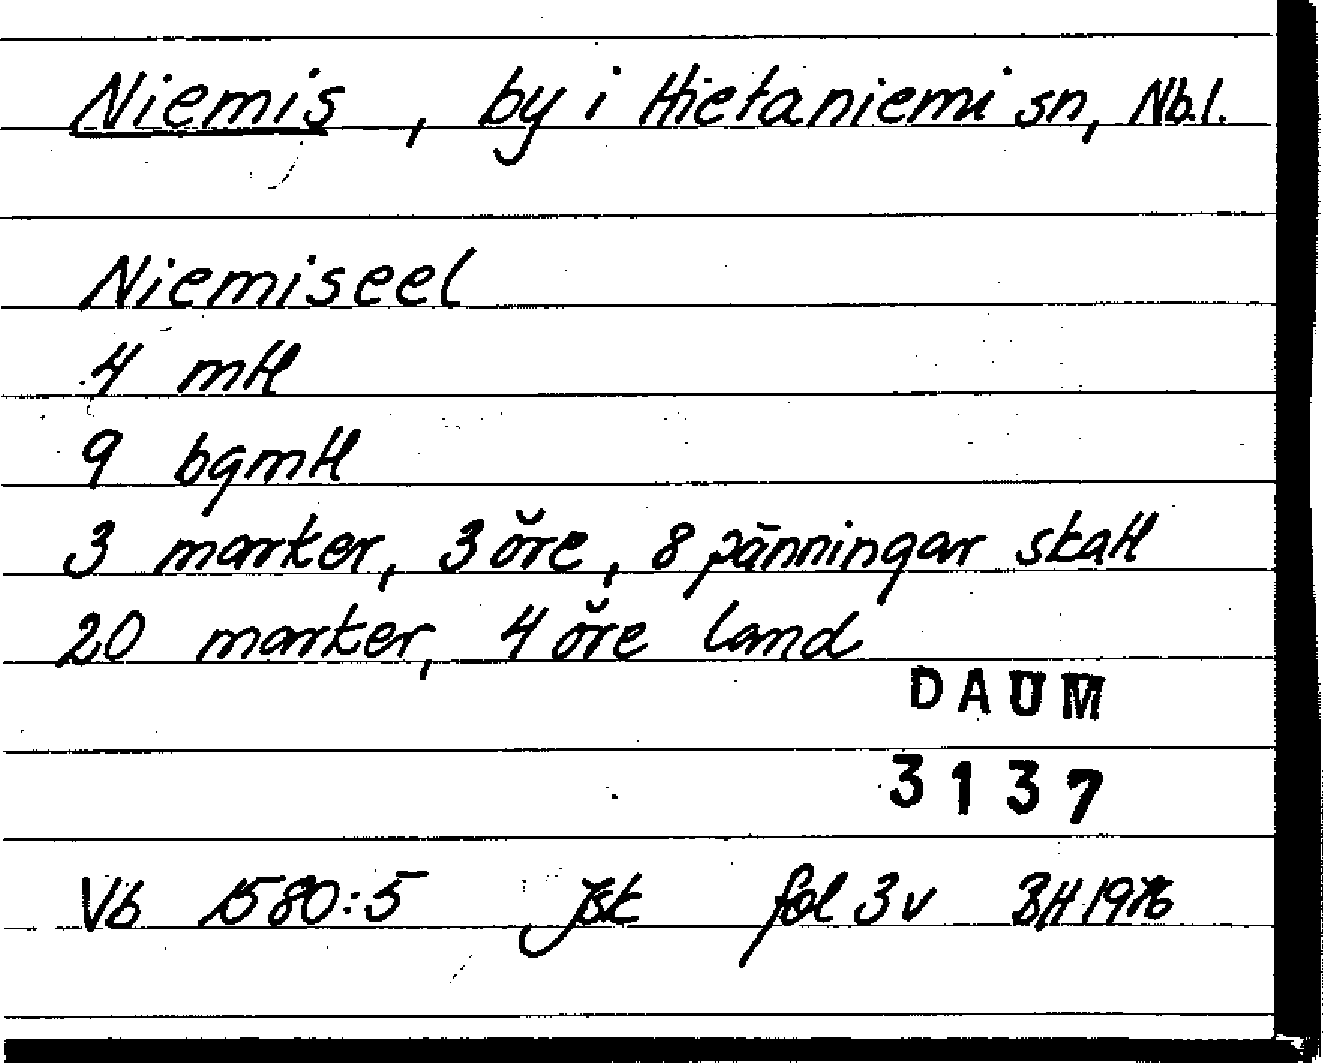 Niemis, by i Hietaniemi sn, Nb.l.
Niemiseel
4 mtl
9 bgmtl
3 marker, 3 öre, 8 pänningar skatt
20 marker, 4 öre land
DAUM
3137
Vb 1580:5 Jsk fol 3v BH 1976